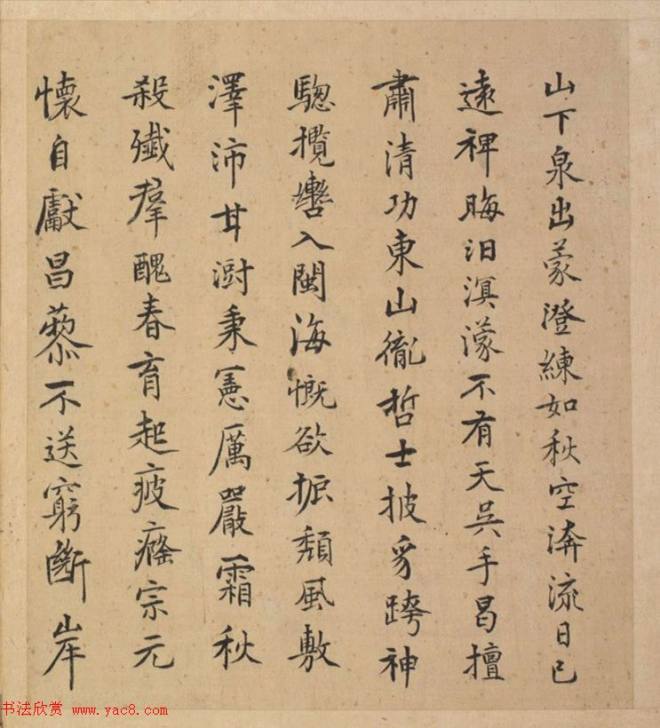 山下泉出蒙澄練如秋空渀流日已
遠裨晦汩溟濛不有天吳手曷擅
肅清功東山徹哲士披豸跨神
驄攬轡入閩海慨欲振頹風敷
澤沛甘澍秉憲厲嚴霜秋
殺殲羣醜春育起疲癃宗元
懷自獻昌藜不送窮斷岸
书法欣赏 www.yac8.com